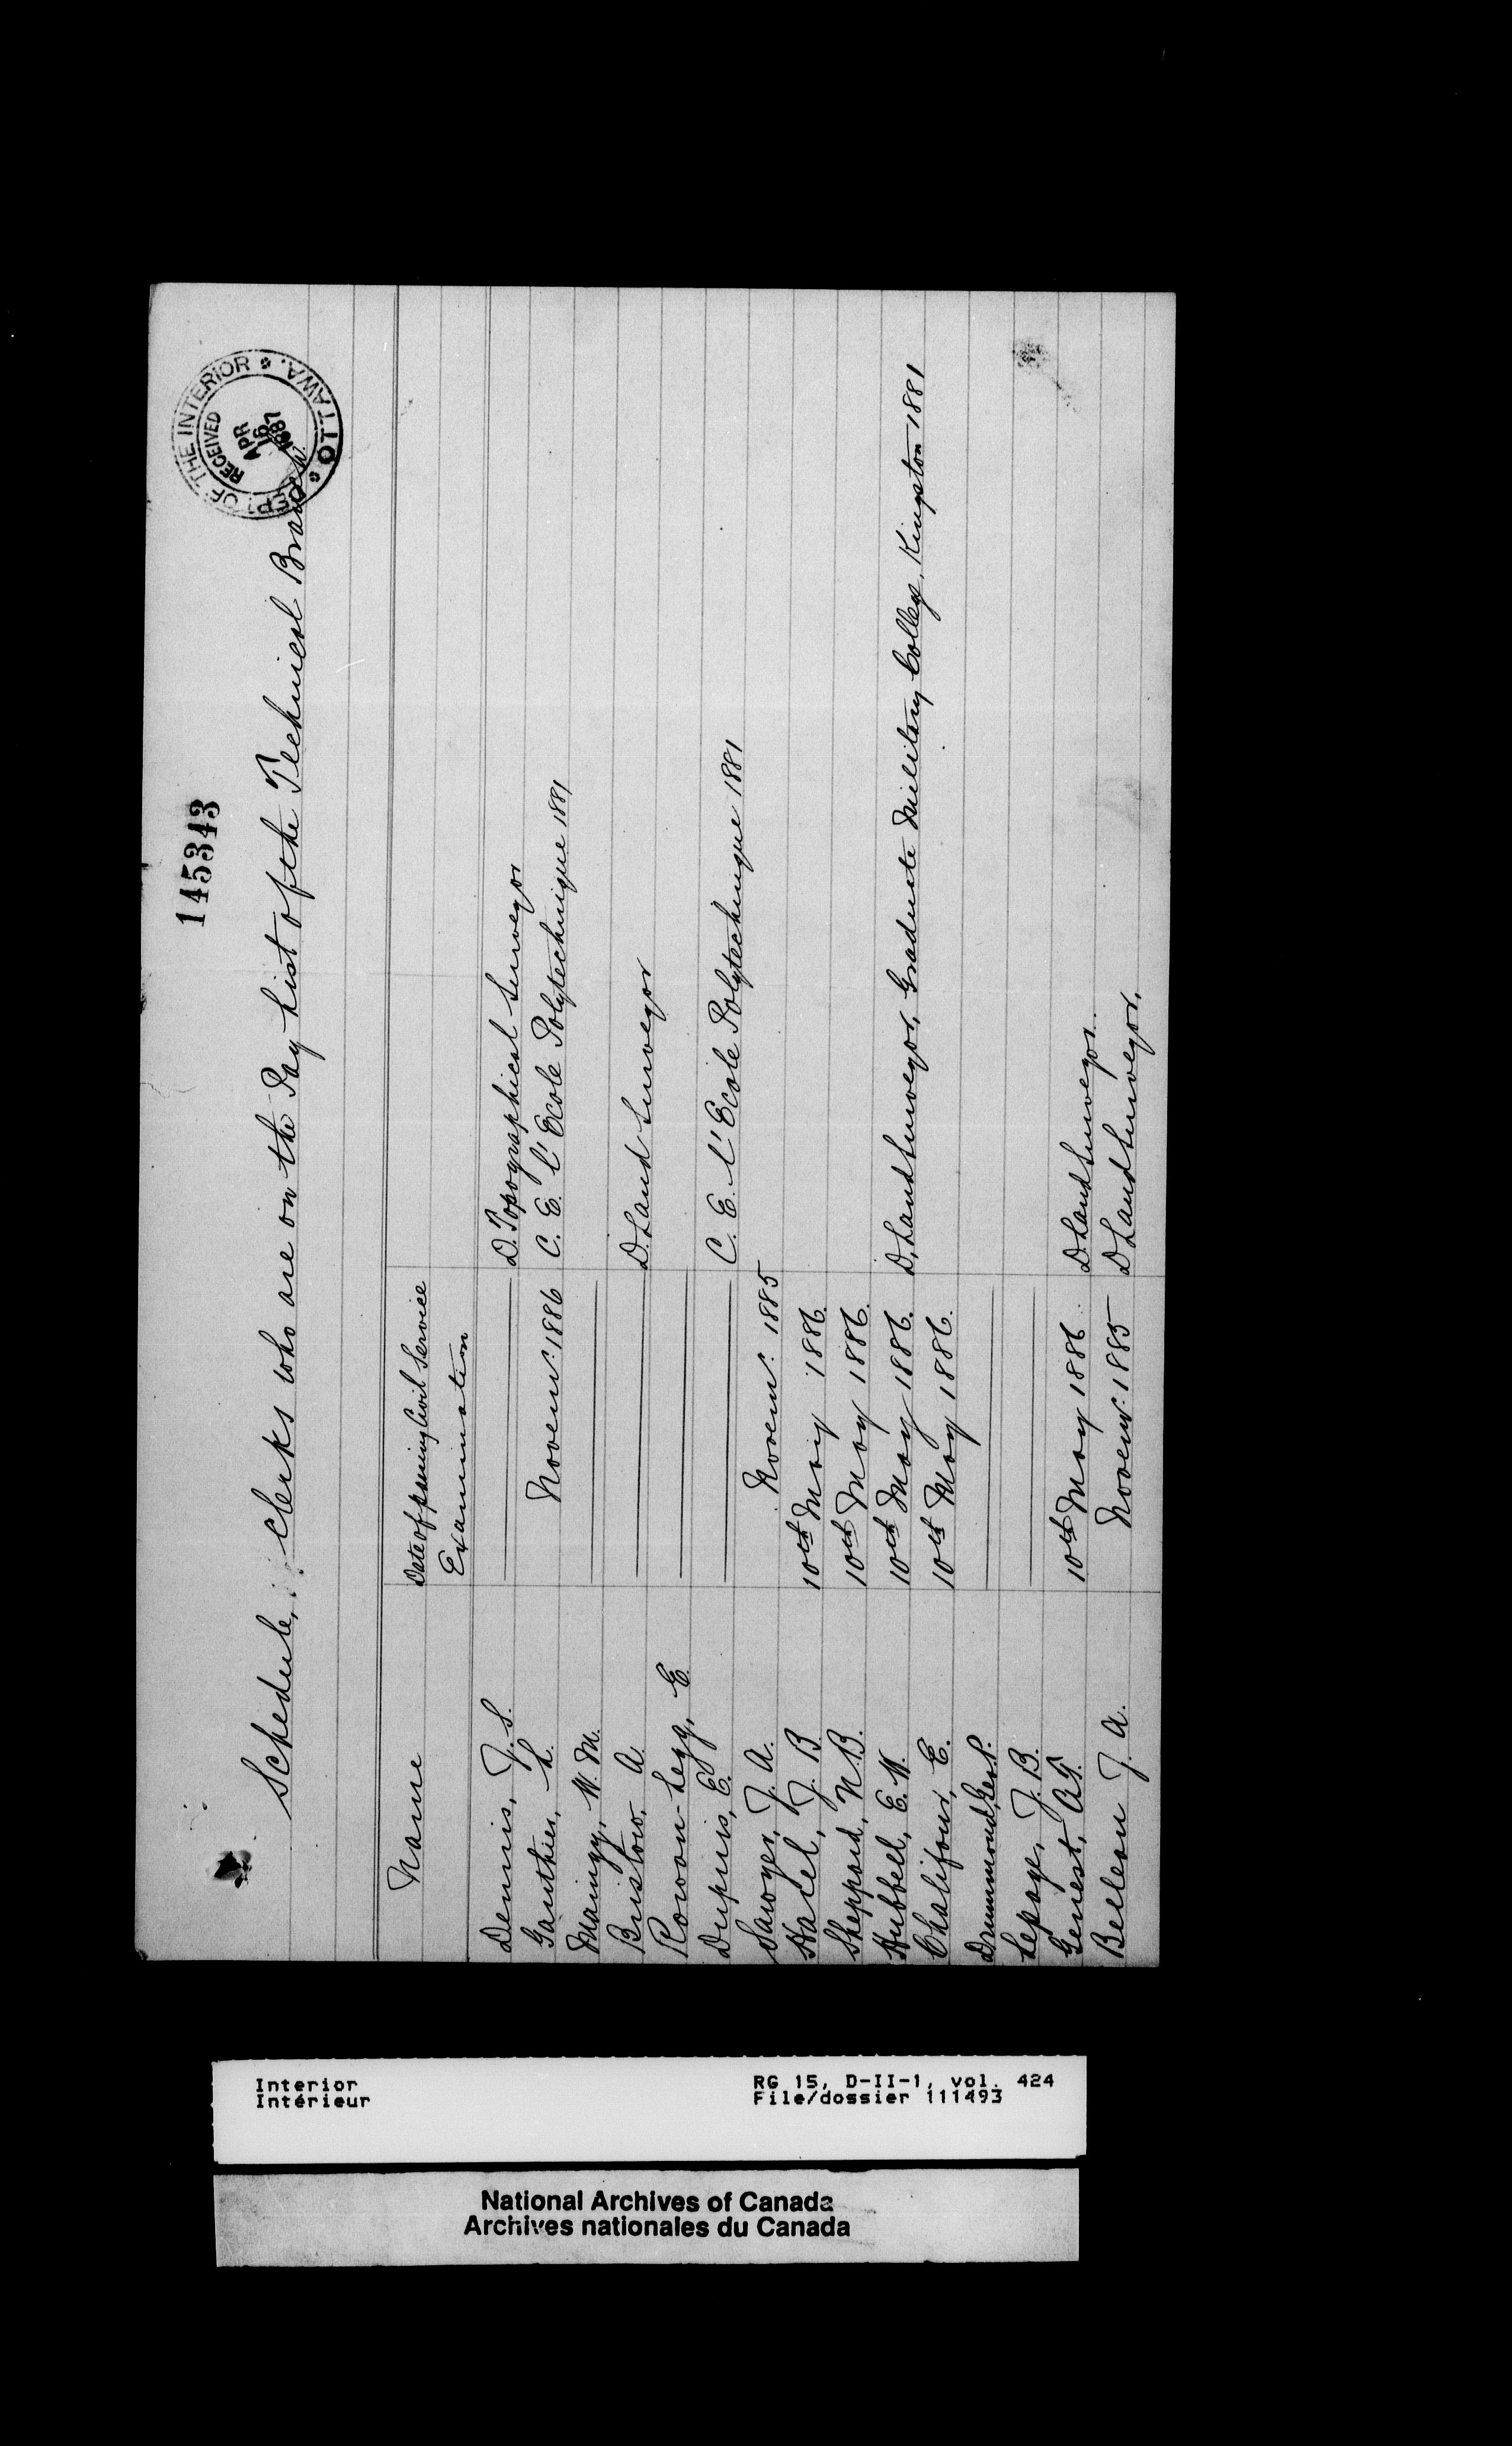 145343
DEPT OF THE INTERIOR
RECEIVED
APR
16
1887
OTTAWA.
Schedule, Clerks who are on the Pay-List of the Technical Branch.
Name
Date of passing Civil Service
Examination
Dennis, J. S. D. Topographical Surveyor
Gauthier, L. Novemr. 1886 C. E. l'Ecole Polytechnique 1881
Maingy, W. M.
Bristow, A. D. Land Surveyor
Rowon-Legg, E.
Dupuis, E. C. E. l'Ecole Polytechnique 1881
Sawyer, J. A. Novemr. 1885
Harel, J. B. 10th May 1886.
Sheppard, N. B. 10th May 1886.
Hubbell, E. W. 10th May 1886. D. Land Surveyor, Graduate Military College, Kingston 1881
Chalifour, E. 10th May 1886.
Drummond, Geo. P.
Lepage, J. B.
Genest, A. 10th May 1886 D. Land Surveyor.
Belleau J. A. Novemr. 1885 D Land Surveyor.
Interior RG 15, D-II-1, vol. 424
Intérieur File/dossier 111493
National Archives of Canada
Archives nationales du Canada